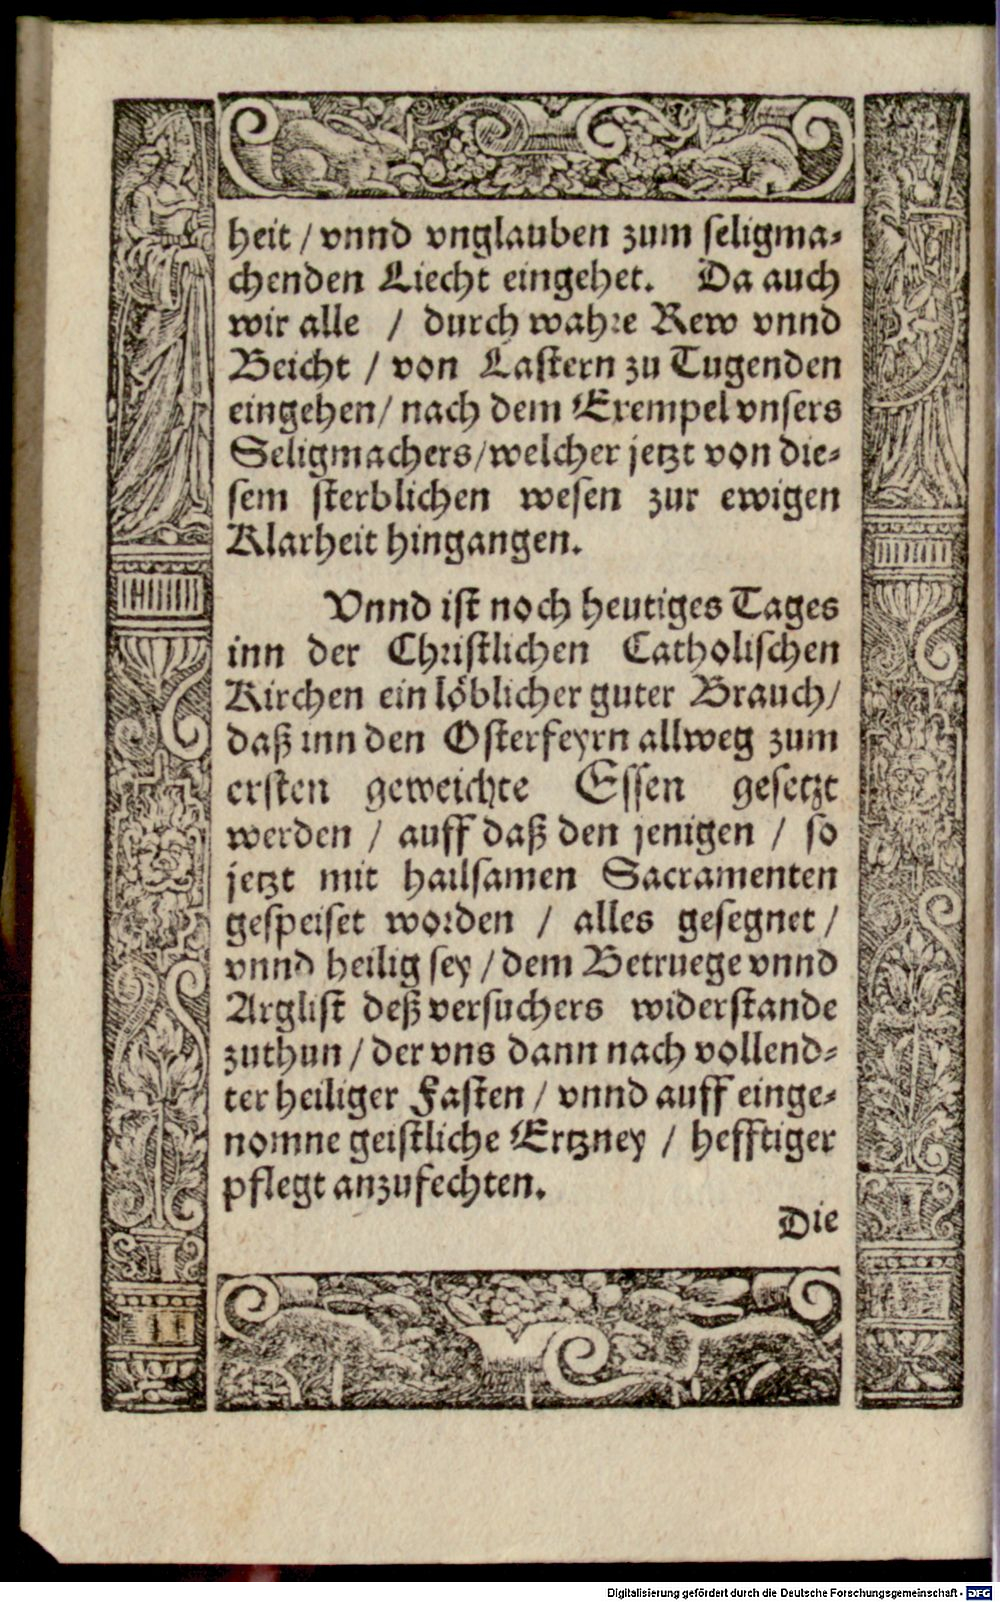 heit / vnnd vnglauben zum seligma-
chenden Liecht eingehet. Da auch
wir alle / durch wahre Rew vnnd
Beicht / von Lastern zu Tugenden
eingehen / nach dem Exempel vnsers
Seligmachers / welcher jetzt von die-
sem sterblichen wesen zur ewigen
Klarheit hingangen.
Vnnd ist noch heutiges Tages
inn der Christlichen Catholischen
Kirchen ein löblicher guter Brauch /
daß inn den Osterfeyrn allweg zum
ersten geweichte Essen gesetzt
werden / auff daß den jenigen / so
jetzt mit hailsamen Sacramenten
gespeiset worden / alles gesegnet /
vnnd heilig sey / dem Betruege vnnd
Arglist deß versuchers widerstande
zuthun / der vns dann nach vollend-
ter heiliger Fasten / vnnd auff einge-
nomne geistliche Ertzney / hefftiger
pflegt anzufechten.
Die
Digitalisierung gefördert durch die Deutsche Forschungsgemeinschaft - DFG